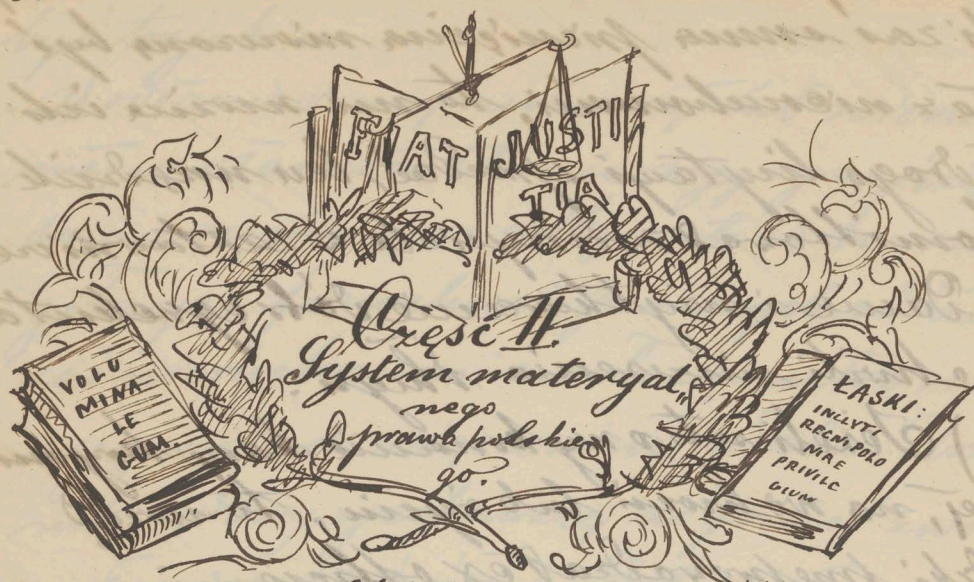 FIAT JUSTI
TIA
Część II.
System materyal„
nego
prawa polskie„
go.
VOLU
MINA
LE
GUM.
ŁASKI:
INCLYTI
REGNI POLO
NIAE
PRIVILE
GIUM